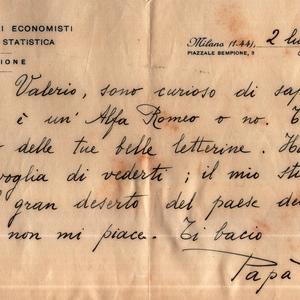 I ECONOMISTI
STATISTICA
IONE
Milano (1.44), 2 lu
PIAZZALE SEMPIONE, 3
Valerio, sono curioso di sap
è un' Alfa Romeo o no. E
delle tue belle letterine. Ho
voglia di vederti; il mio sti
gran deserto del paese de
non mi piace. Ti bacio
Papà